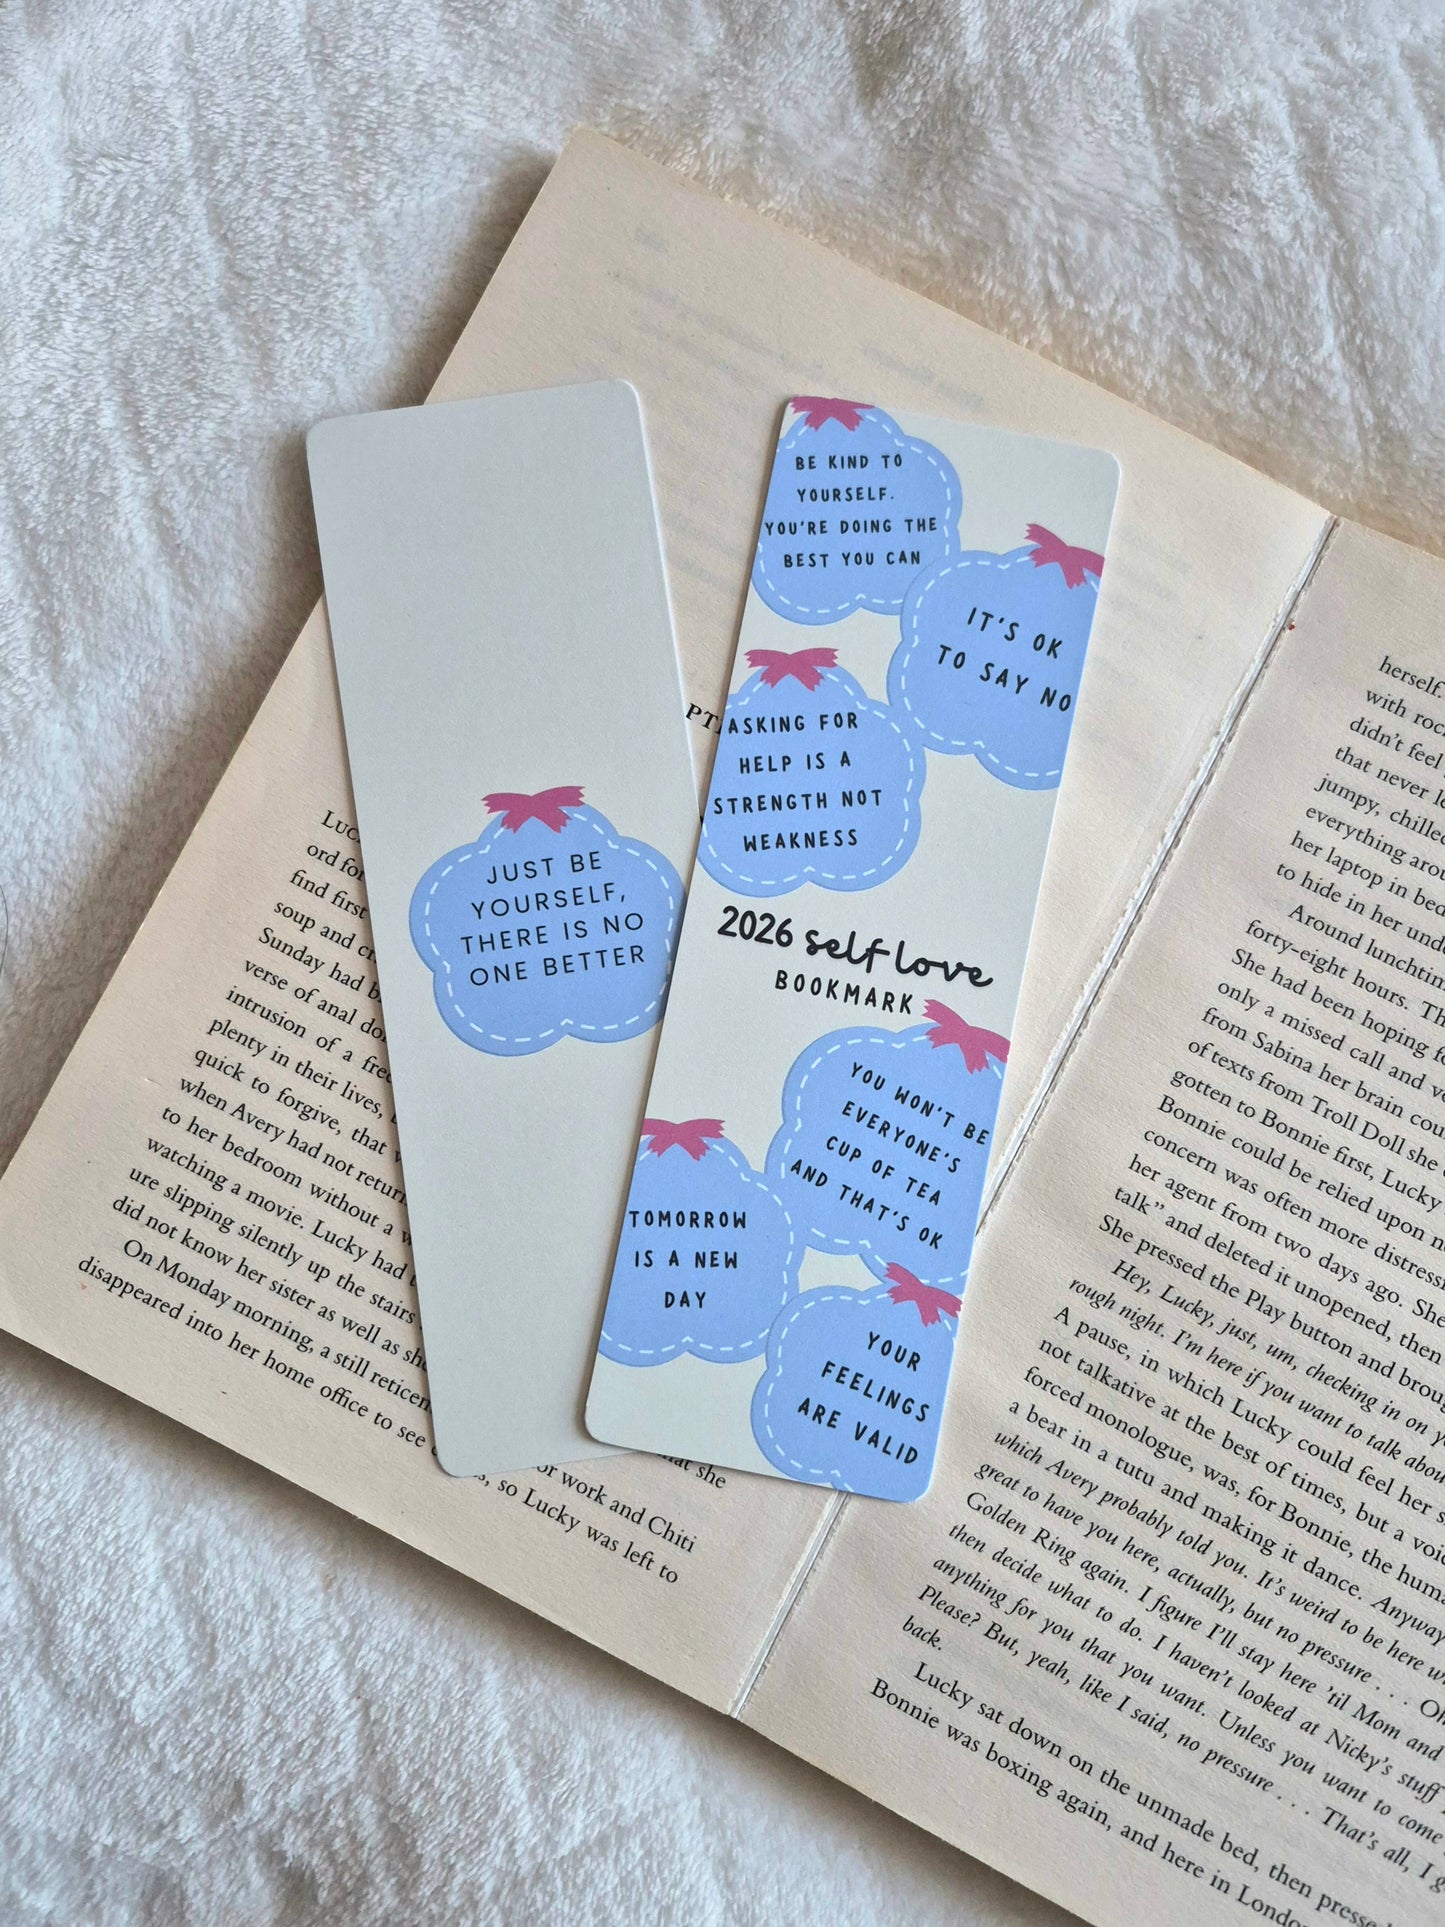 JUST BE
YOURSELF,
THERE IS NO
ONE BETTER
BE KIND TO
YOURSELF.
YOU'RE DOING THE
BEST YOU CAN
IT'S OK
TO SAY NO
ASKING FOR
HELP IS A
STRENGTH NOT
WEAKNESS
2026 self love
BOOKMARK
YOU WON'T BE
EVERYONE'S
CUP OF TEA
AND THAT'S OK
TOMORROW
IS A NEW
DAY
YOUR
FEELINGS
ARE VALID
ord for
find first
soup and
Sunday had
verse of anal
intrusion of a
plenty in their lives,
quick to forgive, that
when Avery had not
to her bedroom without a
watching a movie. Lucky had
ure slipping silently up the stairs
did not know her sister as well as
On Monday morning, a still
disappeared into her home office to see
she
or work and Chiti
so Lucky was left to
herself.
with
didn't feel
that never
jumpy,
everything
her laptop in
to hide in her
Around
forty-eight hours.
She had been hoping
only a missed call and
from Sabina her brain
of texts from Troll Doll she
gotten to Bonnie first, Lucky
Bonnie could be relied upon
concern was often more
her agent from two days ago. She
talk" and deleted it unopened, then
She pressed the Play button and
Hey, Lucky, just, um, checking in on
rough night. I'm here if you want to talk
A pause, in which Lucky could feel her
not talkative at the best of times, but a
forced monologue, was, for Bonnie, the
a bear in a tutu and making it dance. Anyway
which Avery probably told you. It's weird to be here
great to have you here, actually, but no pressure . . .
Golden Ring again. I figure I'll stay here 'til Mom and
then decide what to do. I haven't looked at Nicky's stuff
anything for you that you want. Unless you want to come
Please? But, yeah, like I said, no pressure . . . That's all, I
back.
Lucky sat down on the unmade bed, then
Bonnie was boxing again, and here in